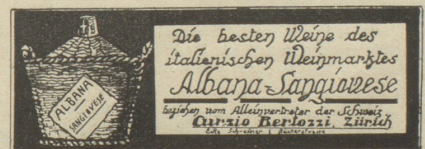 ALBANA
SANGIOVESE
Die besten Weine des
italienischen Weinmarktes
Albana-Sangiovese
beziehen vom Alleinvertreter der Schweiz
Curzio Bertozzi, Zürich